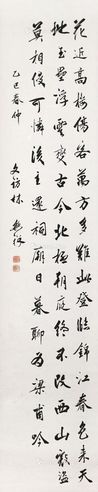 花近高樓傷客萬方多難此登臨錦江春色來天
地玉壘浮雲變古今北極朝廷終不改西山寇盜
莫相侵可憐後主還祠廟日暮聊為梁甫吟
乙巳春仲 文訪林熊祥